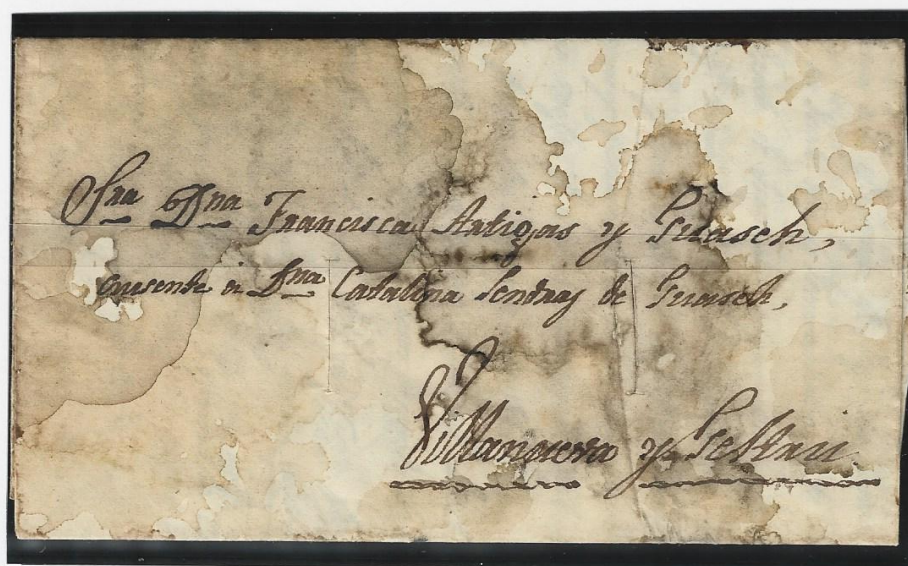 Sra Dna Francisca Artigas y Guasch,
ausente a Dna Catalina Sendra de Guasch,
Villanueva y Geltru